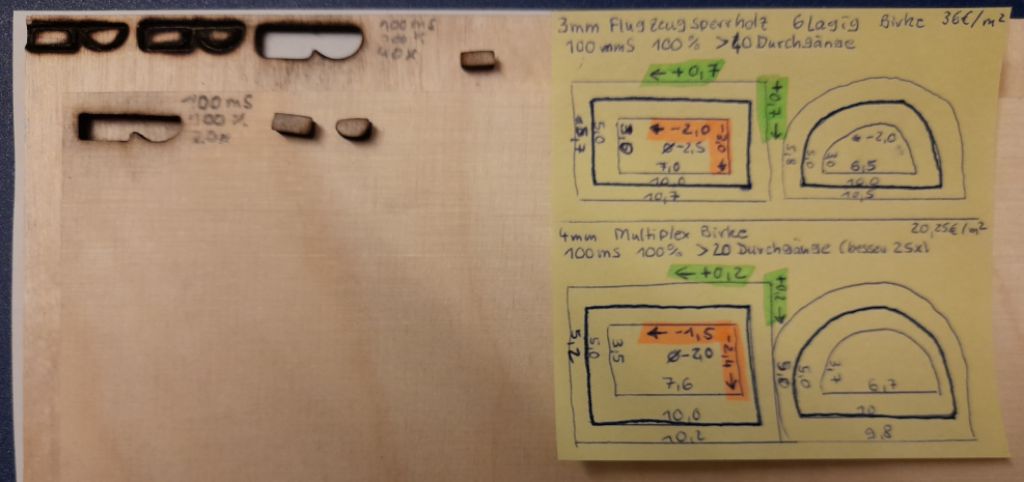 100mS
100%
40x
100mS
100%
20x
3mm Flugzeugsperrholz 6Lagig Birke 36€/m²
100mmS 100% >40 Durchgänge
← +0,7
+0,7 →
5,7
5,0
3,0
← -2,0
-2,0 →
Ø-2,5
7,0
10,0
10,7
5,8
5,0
3,0
← -2,0
6,5
10,0
10,5
4mm Multiplex Birke 20,25€/m²
100mS 100% >20 Durchgänge (besser 25x)
← +0,2
+0,2 →
5,2
5,0
3,5
← -1,5
-2,4 →
Ø-2,0
7,6
10,0
10,2
5,0
3,7
6,7
10
9,8